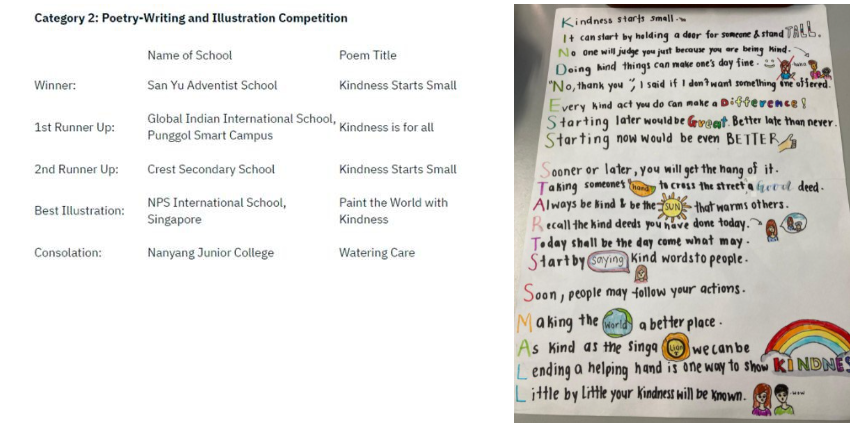 Category 2: Poetry-Writing and Illustration Competition
Name of School Poem Title
Winner: San Yu Adventist School Kindness Starts Small
1st Runner Up: Global Indian International School, Punggol Smart Campus Kindness is for all
2nd Runner Up: Crest Secondary School Kindness Starts Small
Best Illustration: NPS International School, Singapore Paint the World with Kindness
Consolation: Nanyang Junior College Watering Care
Kindness starts small.
It can start by holding a door for someone & stand TALL.
No one will judge you just because you are being kind.
Doing kind things can make one's day fine.
"No, thank you", I said if I don't want something one offered.
Every kind act you do can make a Difference!
Starting later would be Great. Better late than never.
Starting now would be even BETTER
Sooner or later, you will get the hang of it.
Taking someone's hand to cross the street a Good deed.
Always be kind & be the SUN that warms others.
Recall the kind deeds you have done today.
Today shall be the day come what may.
Start by saying kind words to people.
Soon, people may follow your actions.
Making the World a better place.
As kind as the Singa Lion we can be
Lending a helping hand is one way to show KINDNES
Little by little your kindness will be known.